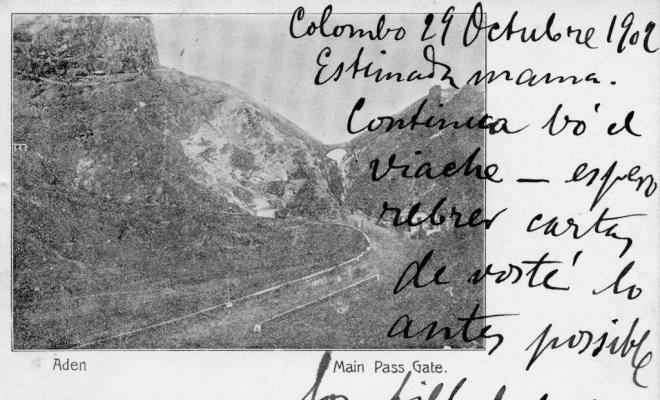 Colombo 29 Octubre 1902
Estimada mama.
Continua bó el
viache — espero
rebrer cartas
de vosté lo
antes possible
Aden
Main Pass Gate.